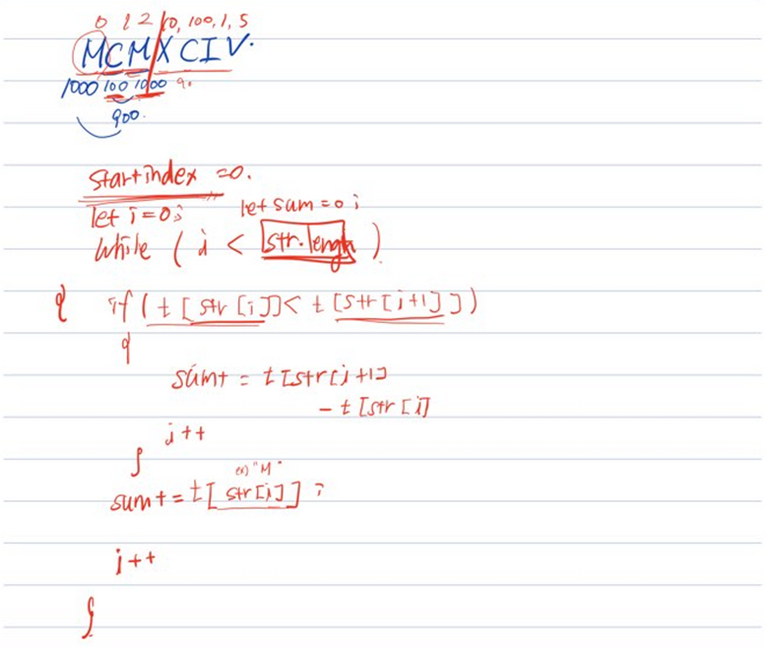 0 1 2 10, 100, 1, 5
MCMXCIV.
1000 100 1000 9.
900.
startindex = 0.
let i=0; let sum=0;
while ( i < str.length )
{ if ( t [ str [i]] < t [str [i+1] ] )
{
sum+ = t[str[i+1]
- t [str [i]
i++
}
ex) "M"
sum+= t[ str[i] ] ;
i++
}